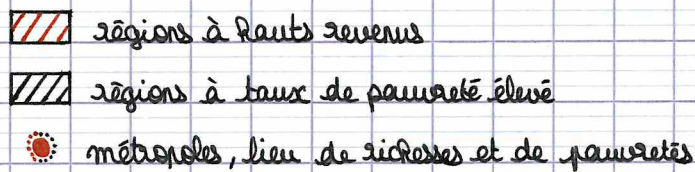 régions à hauts revenus
régions à taux de pauvreté élevé
métropoles, lieu de richesses et de pauvretés